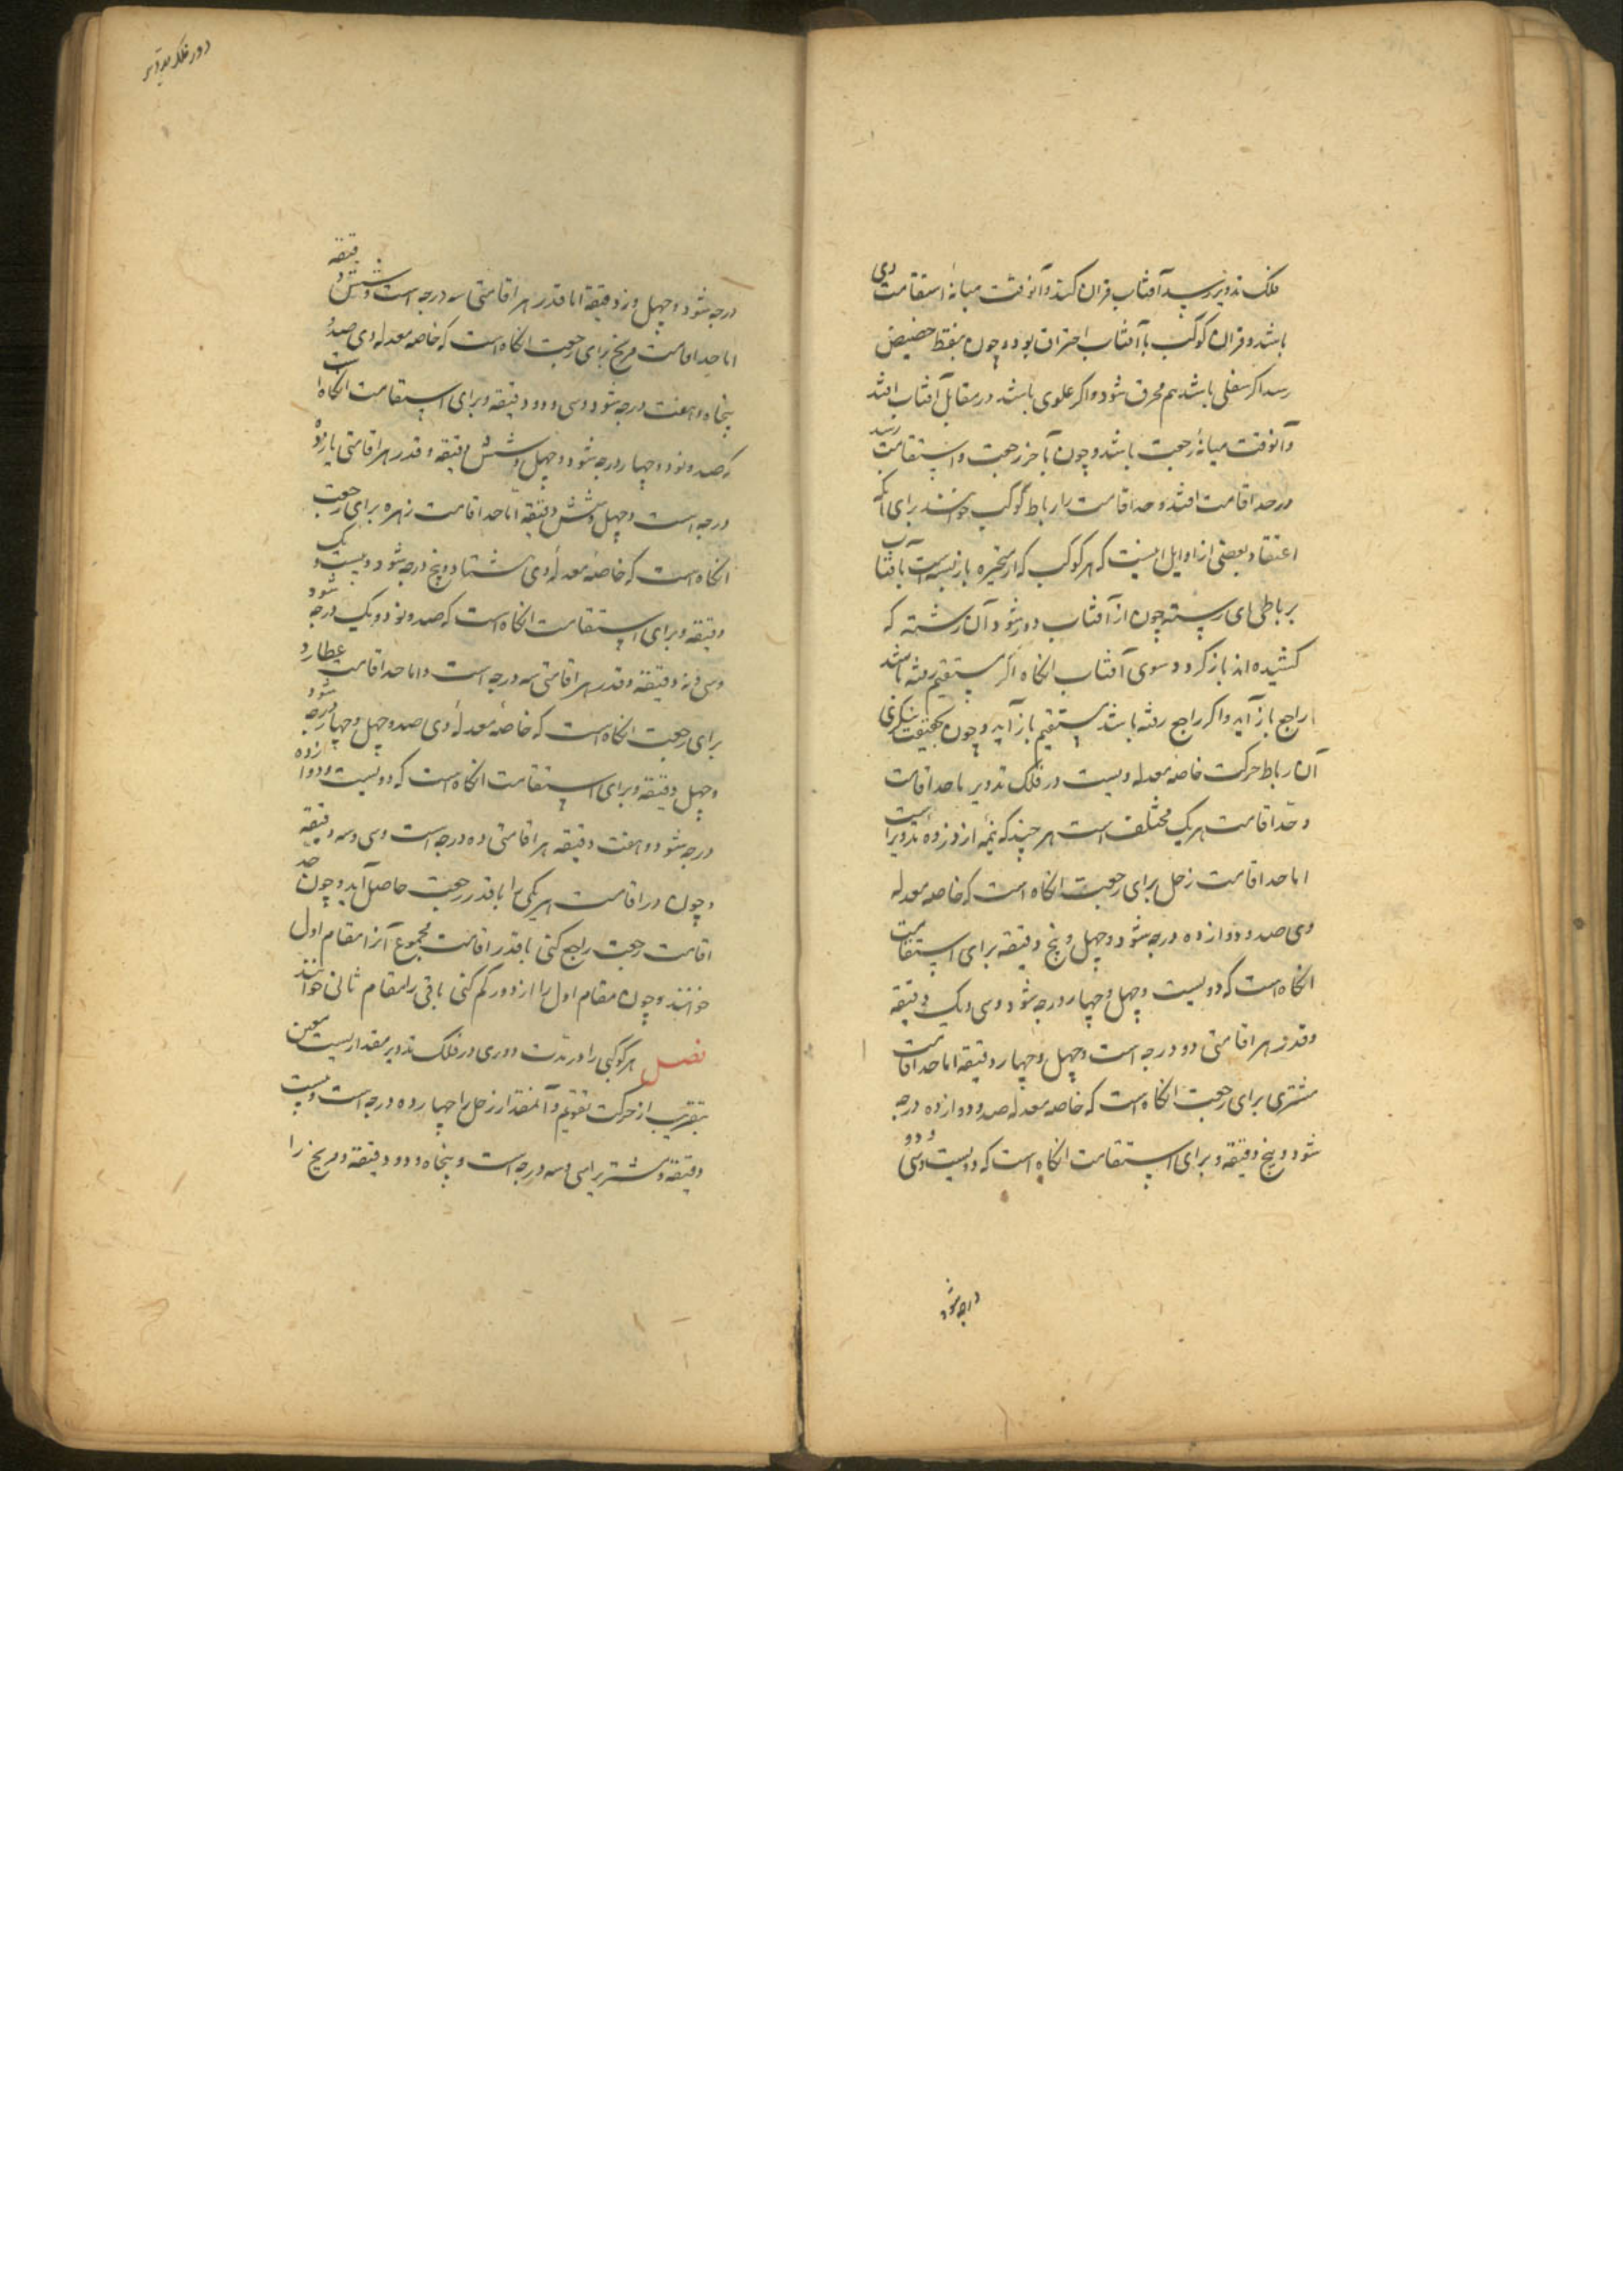 فلک تدویر رسید آفتاب قران کند و آنوقت میانهٔ استقامت وی
باشد و قران کوکب با آفتاب احتراق بود و چون بنقط حضیض
رسد اگر سفلی باشد هم محرق شود و اگر علوی باشد در مقابل آفتاب افتد
و آنوقت میانهٔ رجعت باشد و چون بآخر رجعت و استقامت رسد
در حد اقامت افتد و حد اقامت را رباط کوکب خوانند برای آنکه
اعتقاد بعضی از اوایل اینست که هر کوکب که از متحیره بازبسته است بآفتاب
برباطی های رسته چون از آفتاب دور شود آن رشته که
کشیده اند باز کردد سوی آفتاب انکاه اگر مستقیم رفته باشد
راجع باز آید و اگر راجع رفته باشد مستقیم باز آید و چون بحقیقت بنکری
آن رباط حرکت خاصه معدله ویست در فلک تدویر با حد اقامت
و حدّ اقامت هر یک مختلف است هر چند که نیمهٔ از ذروهٔ تدویر است
اما حد اقامت زحل برای رجعت انکاه است که خاصه معدله
وی صد و دوازده درجه شود و چهل و پنج دقیقه برای استقامت
انکاه است که دویست و چهل و چهار درجه شود و سی و یک دقیقه
و قدر هر اقامتی دو درجه است و چهل و چهار دقیقه اما حد اقامت
مشتری برای رجعت انکاه است که خاصه معدله صد و دوازده درجه
شود و پنج دقیقه و برای استقامت انکاه است که دویست و سی و دو
درجه شود
دور فلک تدویر
درجه شود و چهل و نه دقیقه اما قدر هر اقامتی سه درجه است و شش دقیقه
اما حد اقامت مریخ برای رجعت انکاه است که خاصه معدله وی صد و
پنجاه و هفت درجه شود و سی و دو دقیقه و برای استقامت انکاه است
که صد و نود و چهار درجه شود و چهل و شش دقیقه و قدر هر اقامتی یازده
درجه است و چهل و شش دقیقه امّا حد اقامت زهره برای رجعت
انکاه است که خاصه معدلهٔ وی هشتاد و پنج درجه شود و بیست و یک
دقیقه و برای استقامت انکاه است که صد و نود و یک درجه شود
و سی و نه دقیقه و قدر هر اقامتی سه درجه است و اما حد اقامت عطارد
برای رجعت انکاه است که خاصه معدلهٔ وی صد و چهل و چهار درجه شود
و چهل دقیقه و برای استقامت انکاه است که دویست و دوازده
درجه شود و هفت دقیقه هر اقامتی ده درجه است و سی و سه دقیقه
و چون در اقامت هر یکی را با قدر رجعت حاصل آید و چون حد
اقامت رجعت راجع کنی با قدر اقامت مجموع آنرا مقام اول
خوانند و چون مقام اول را از دور کم کنی باقی را مقام ثانی خوانند
فصل هر کوکبی را در مدت دوری در فلک تدویر مقداریست معین
بتقریب از حرکت تقویم و آنمقدار زحل را چهارده درجه است و بیست
دقیقه و مشتریرا سی و سه درجه است و پنجاه و دو دقیقه و مریخ را